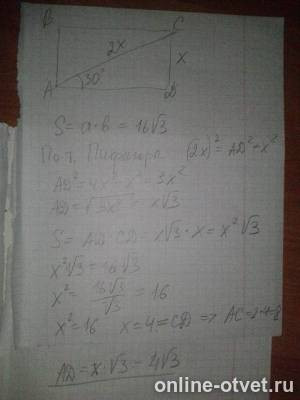 B C
2x
x
A 30° D
S = a·b = 16√3
По т. Пифагора (2x)² = AD² + x²
AD² = 4x² - x² = 3x²
AD = √3x² = x√3
S = AD · CD = x√3 · x = x²√3
x²√3 = 16√3
x² = 16√3/√3 = 16
x² = 16 x = 4 = CD => AC = 2·4 = 8
AD = x·√3 = 4√3
online-otvet.ru